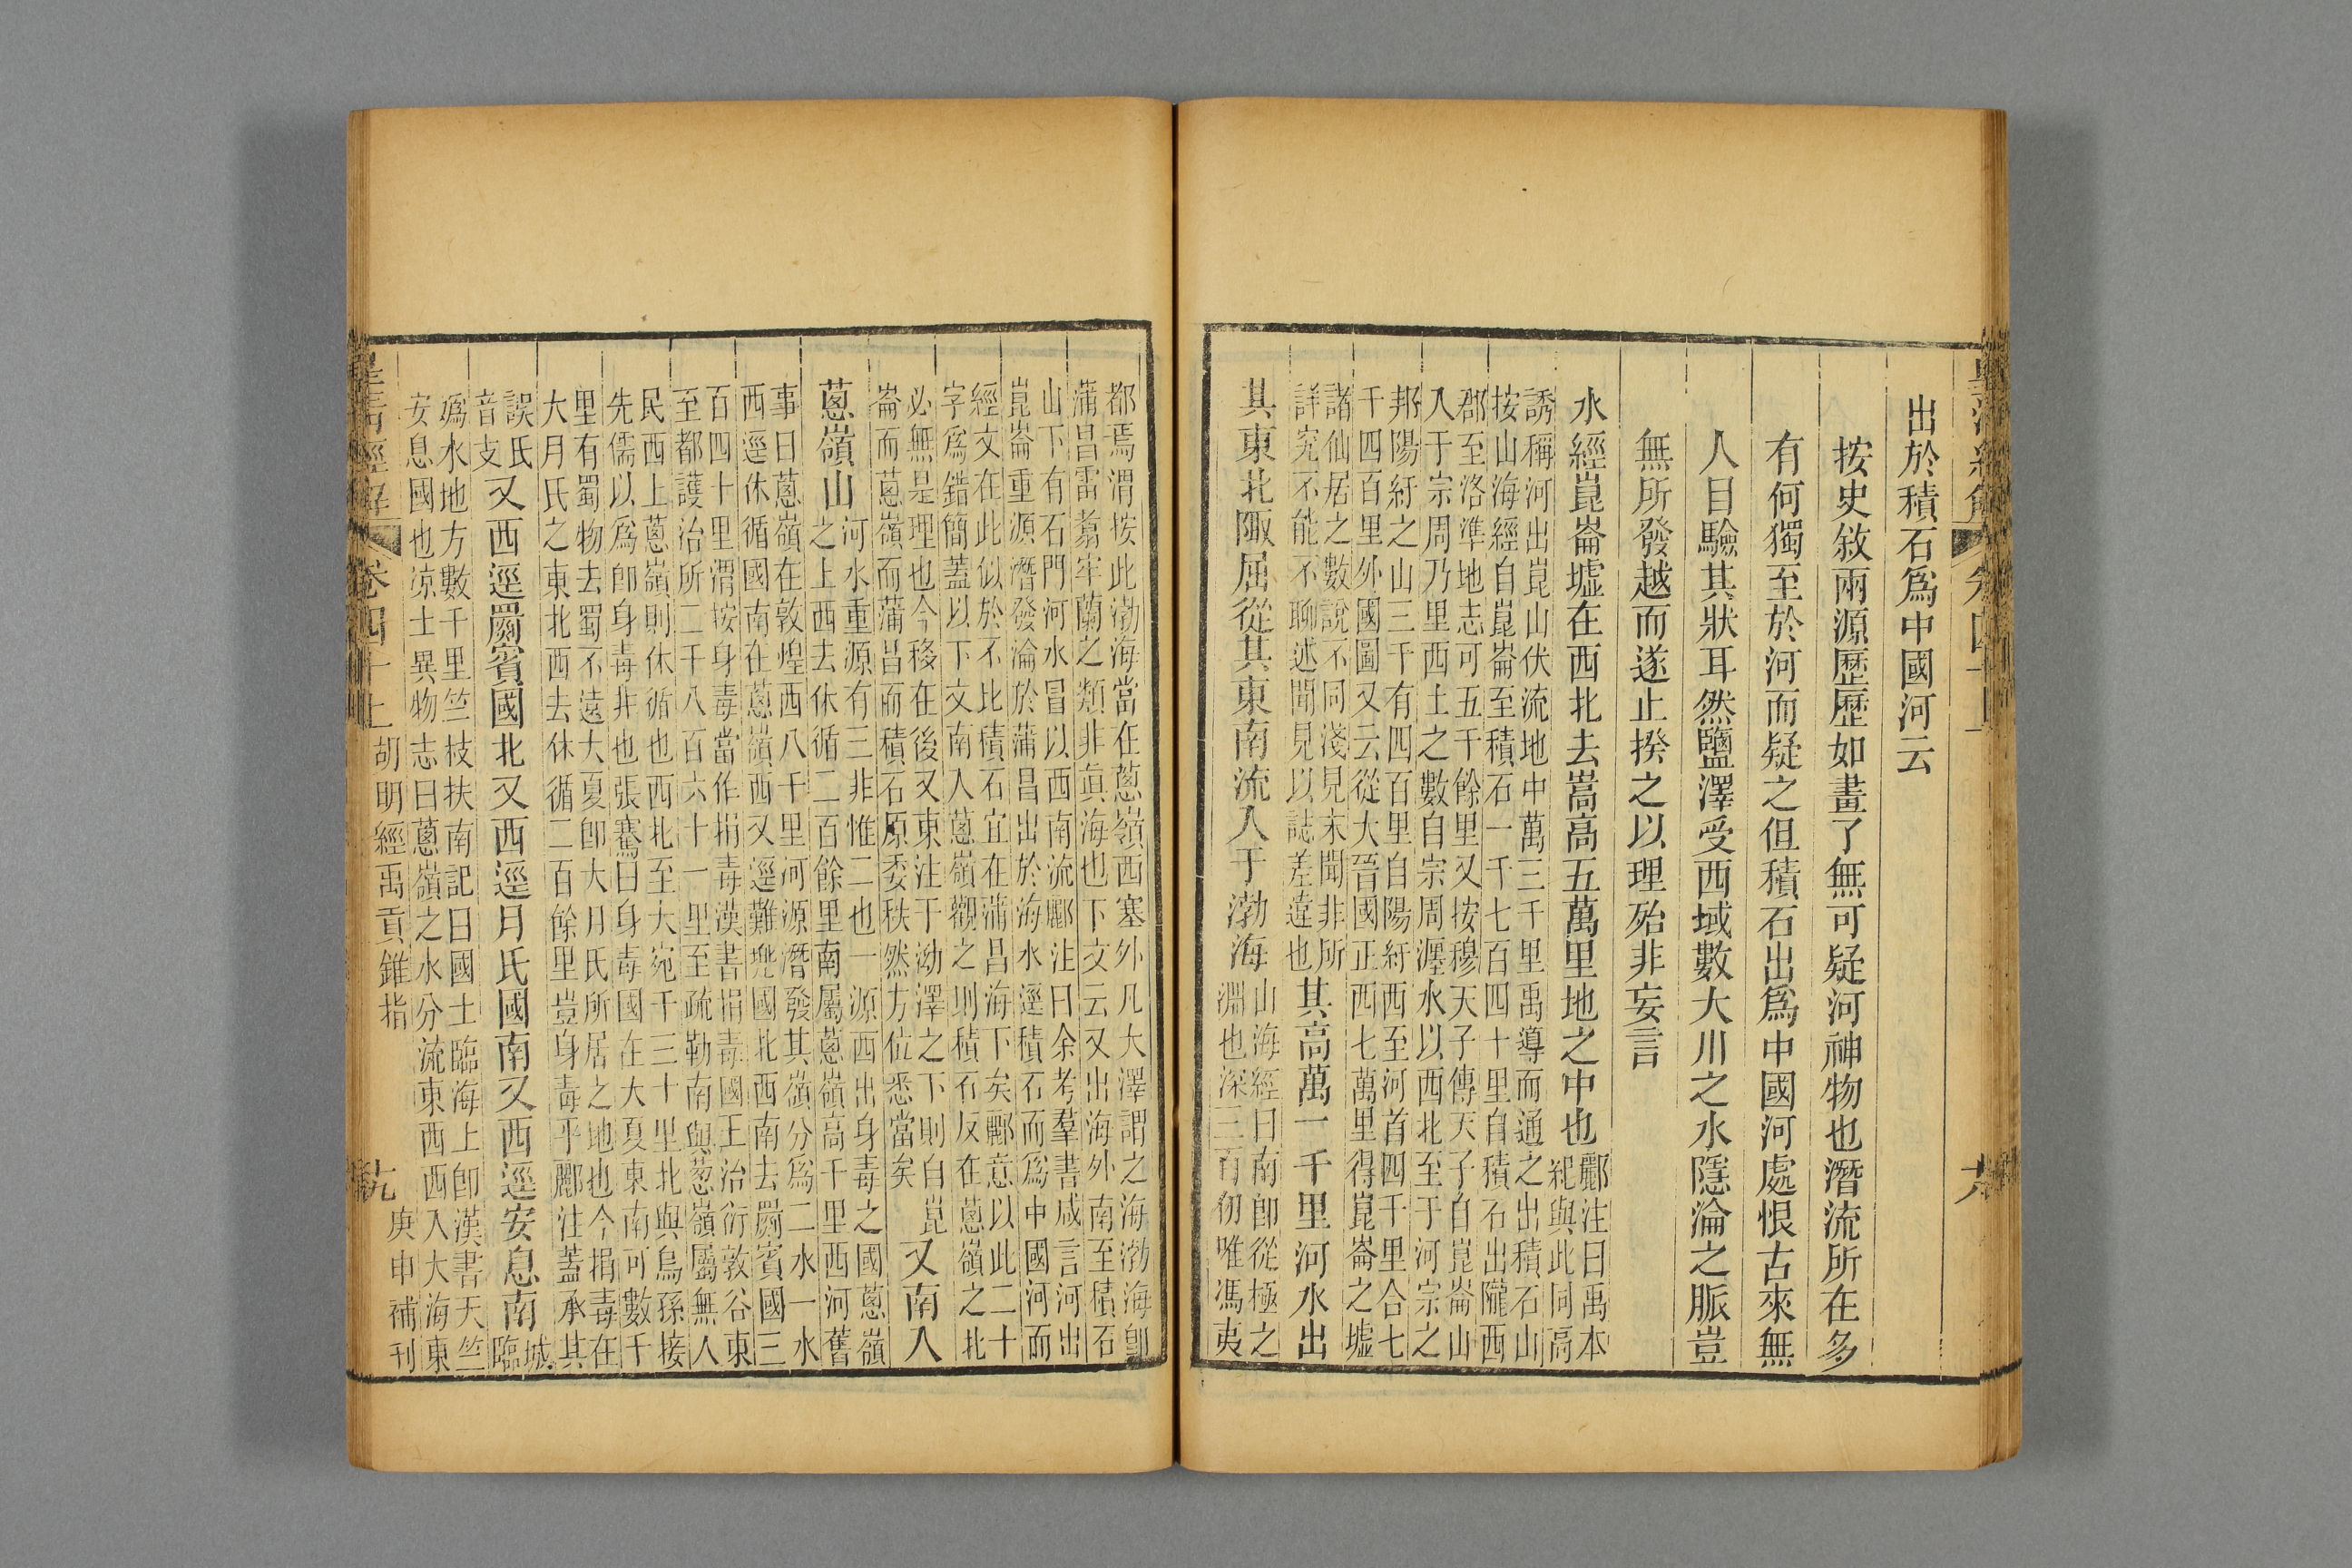 出於積石爲中國河云
按史敘兩源歷歷如畫了無可疑河神物也潛流所在多
有何獨至於河而疑之但積石出爲中國河處恨古來無
人目驗其狀耳然鹽澤受西域數大川之水隱淪之脈豈
無所發越而遂止揆之以理殆非妄言
水經崑崙墟在西北去嵩高五萬里地之中也
酈注曰禹本
紀與此同高
誘稱河出崑山伏流地中萬三千里禹導而通之出積石山
按山海經自崑崙至積石一千七百四十里自積石出隴西
郡至洛準地志可五千餘里又按穆天子傳天子自崑崙山
入于宗周乃里西土之數自宗周瀍水以西北至于河宗之
邦陽紆之山三千有四百里自陽紆西至河首四千里合七
千四百里外國圖又云從大晉國正西七萬里得崑崙之墟
諸仙居之數說不同淺見末聞非所
詳究不能不聊述聞見以誌差違也
其高萬一千里河水出
其東北陬屈從其東南流入于渤海
山海經曰南卽從極之
淵也深三百仞唯馮夷
都焉渭按此渤海當在蔥嶺西塞外凡大澤謂之海渤海卽
蒲昌雷翥牢蘭之類非眞海也下文云又出海外南至積石
山下有石門河水冒以西南流酈注曰余考羣書咸言河出
崑崙重源潛發淪於蒲昌出於海水逕積石而爲中國河而
經文在此似於不比積石宜在蒲昌海下矣酈意以此二十
字爲錯簡蓋以下文南入蔥嶺觀之則積石反在蔥嶺之北
必無是理也今移在後又東注于泑澤之下則白崑
崙而蔥嶺而蒲昌而積石原委秩然方位悉當矣
又南入
蔥嶺山
河水重源有三非惟二也一源西出身毒之國蔥嶺
之上西去休循二百餘里南屬蔥嶺高千里西河舊
事曰蔥嶺在敦煌西八千里河源潛發其嶺分爲二水一水
西逕休循國南在蔥嶺西又逕難兜國北西南去罽賓國三
百四十里渭按身毒當作捐毒漢書捐毒國王治衍敦谷東
至都護治所二千八百六十一里至疏勒南與葱嶺屬無人
民西上蔥嶺則休循也西北至大宛千三十里北與烏孫接
先儒以爲卽身毒非也張騫曰身毒國在大夏東南可數千
里有蜀物去蜀不遠大夏卽大月氏所居之地也今捐毒在
大月氏之東北西去休循二百餘里豈身毒乎酈注蓋承其
誤氏
音支
又西逕罽賓國北又西逕月氏國南又西逕安息南
城
臨
嬀水地方數千里竺枝扶南記曰國土臨海上卽漢書天竺
安息國也涼士異物志曰蔥嶺之水分流東西西入大海東
卷四十上
胡明經禹貢錐指
庚申補刊